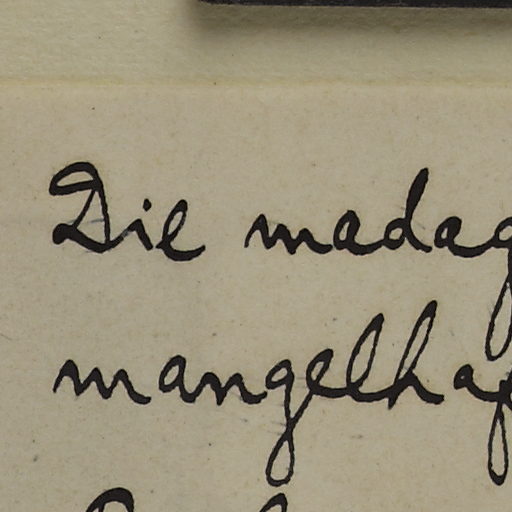 Die madag
mangelhaf